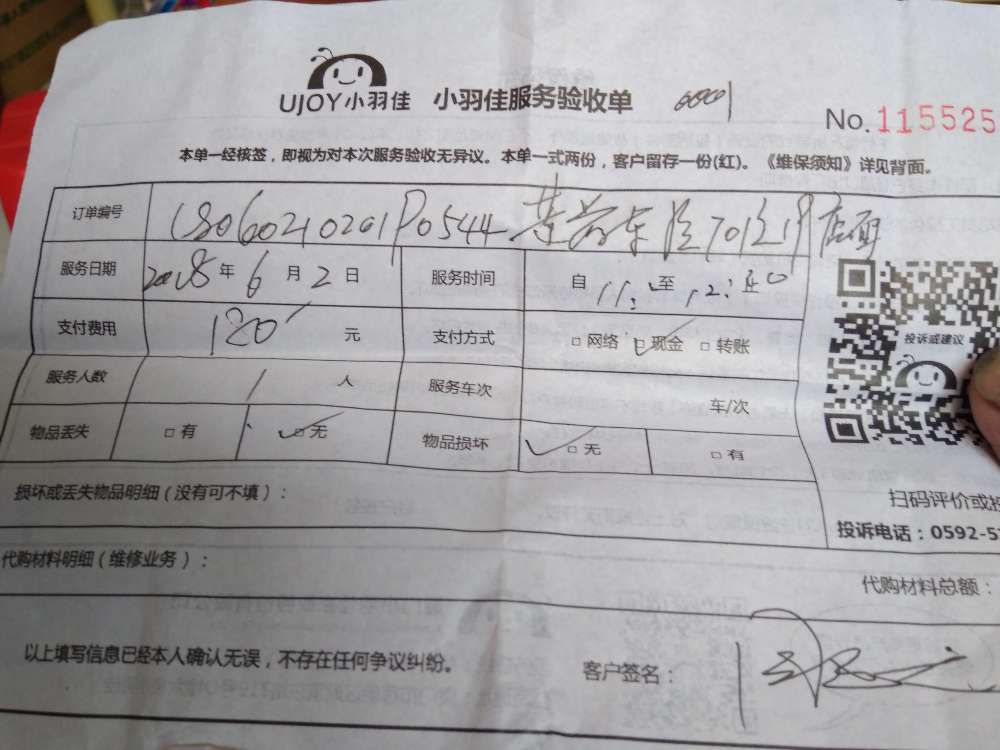 UJOY小羽佳 小羽佳服务验收单
No. 115525
本单一经核签，即视为对本次服务验收无异议。本单一式两份，客户留存一份(红)。《维保须知》详见背面。
订单编号 18060210201P0544 店面
服务日期 2018年6月2日 服务时间 自 11: 至 12:40
支付费用 120 元 支付方式 □网络 ☑现金 □转账
投诉或建议
服务人数 1 人 服务车次 车/次
物品丢失 □有 ☑无 物品损坏 ☑无 □有
损坏或丢失物品明细（没有可不填）：
扫码评价或投
投诉电话：0592-5
代购材料明细（维修业务）：
代购材料总额：
以上填写信息已经本人确认无误，不存在任何争议纠纷。 客户签名：